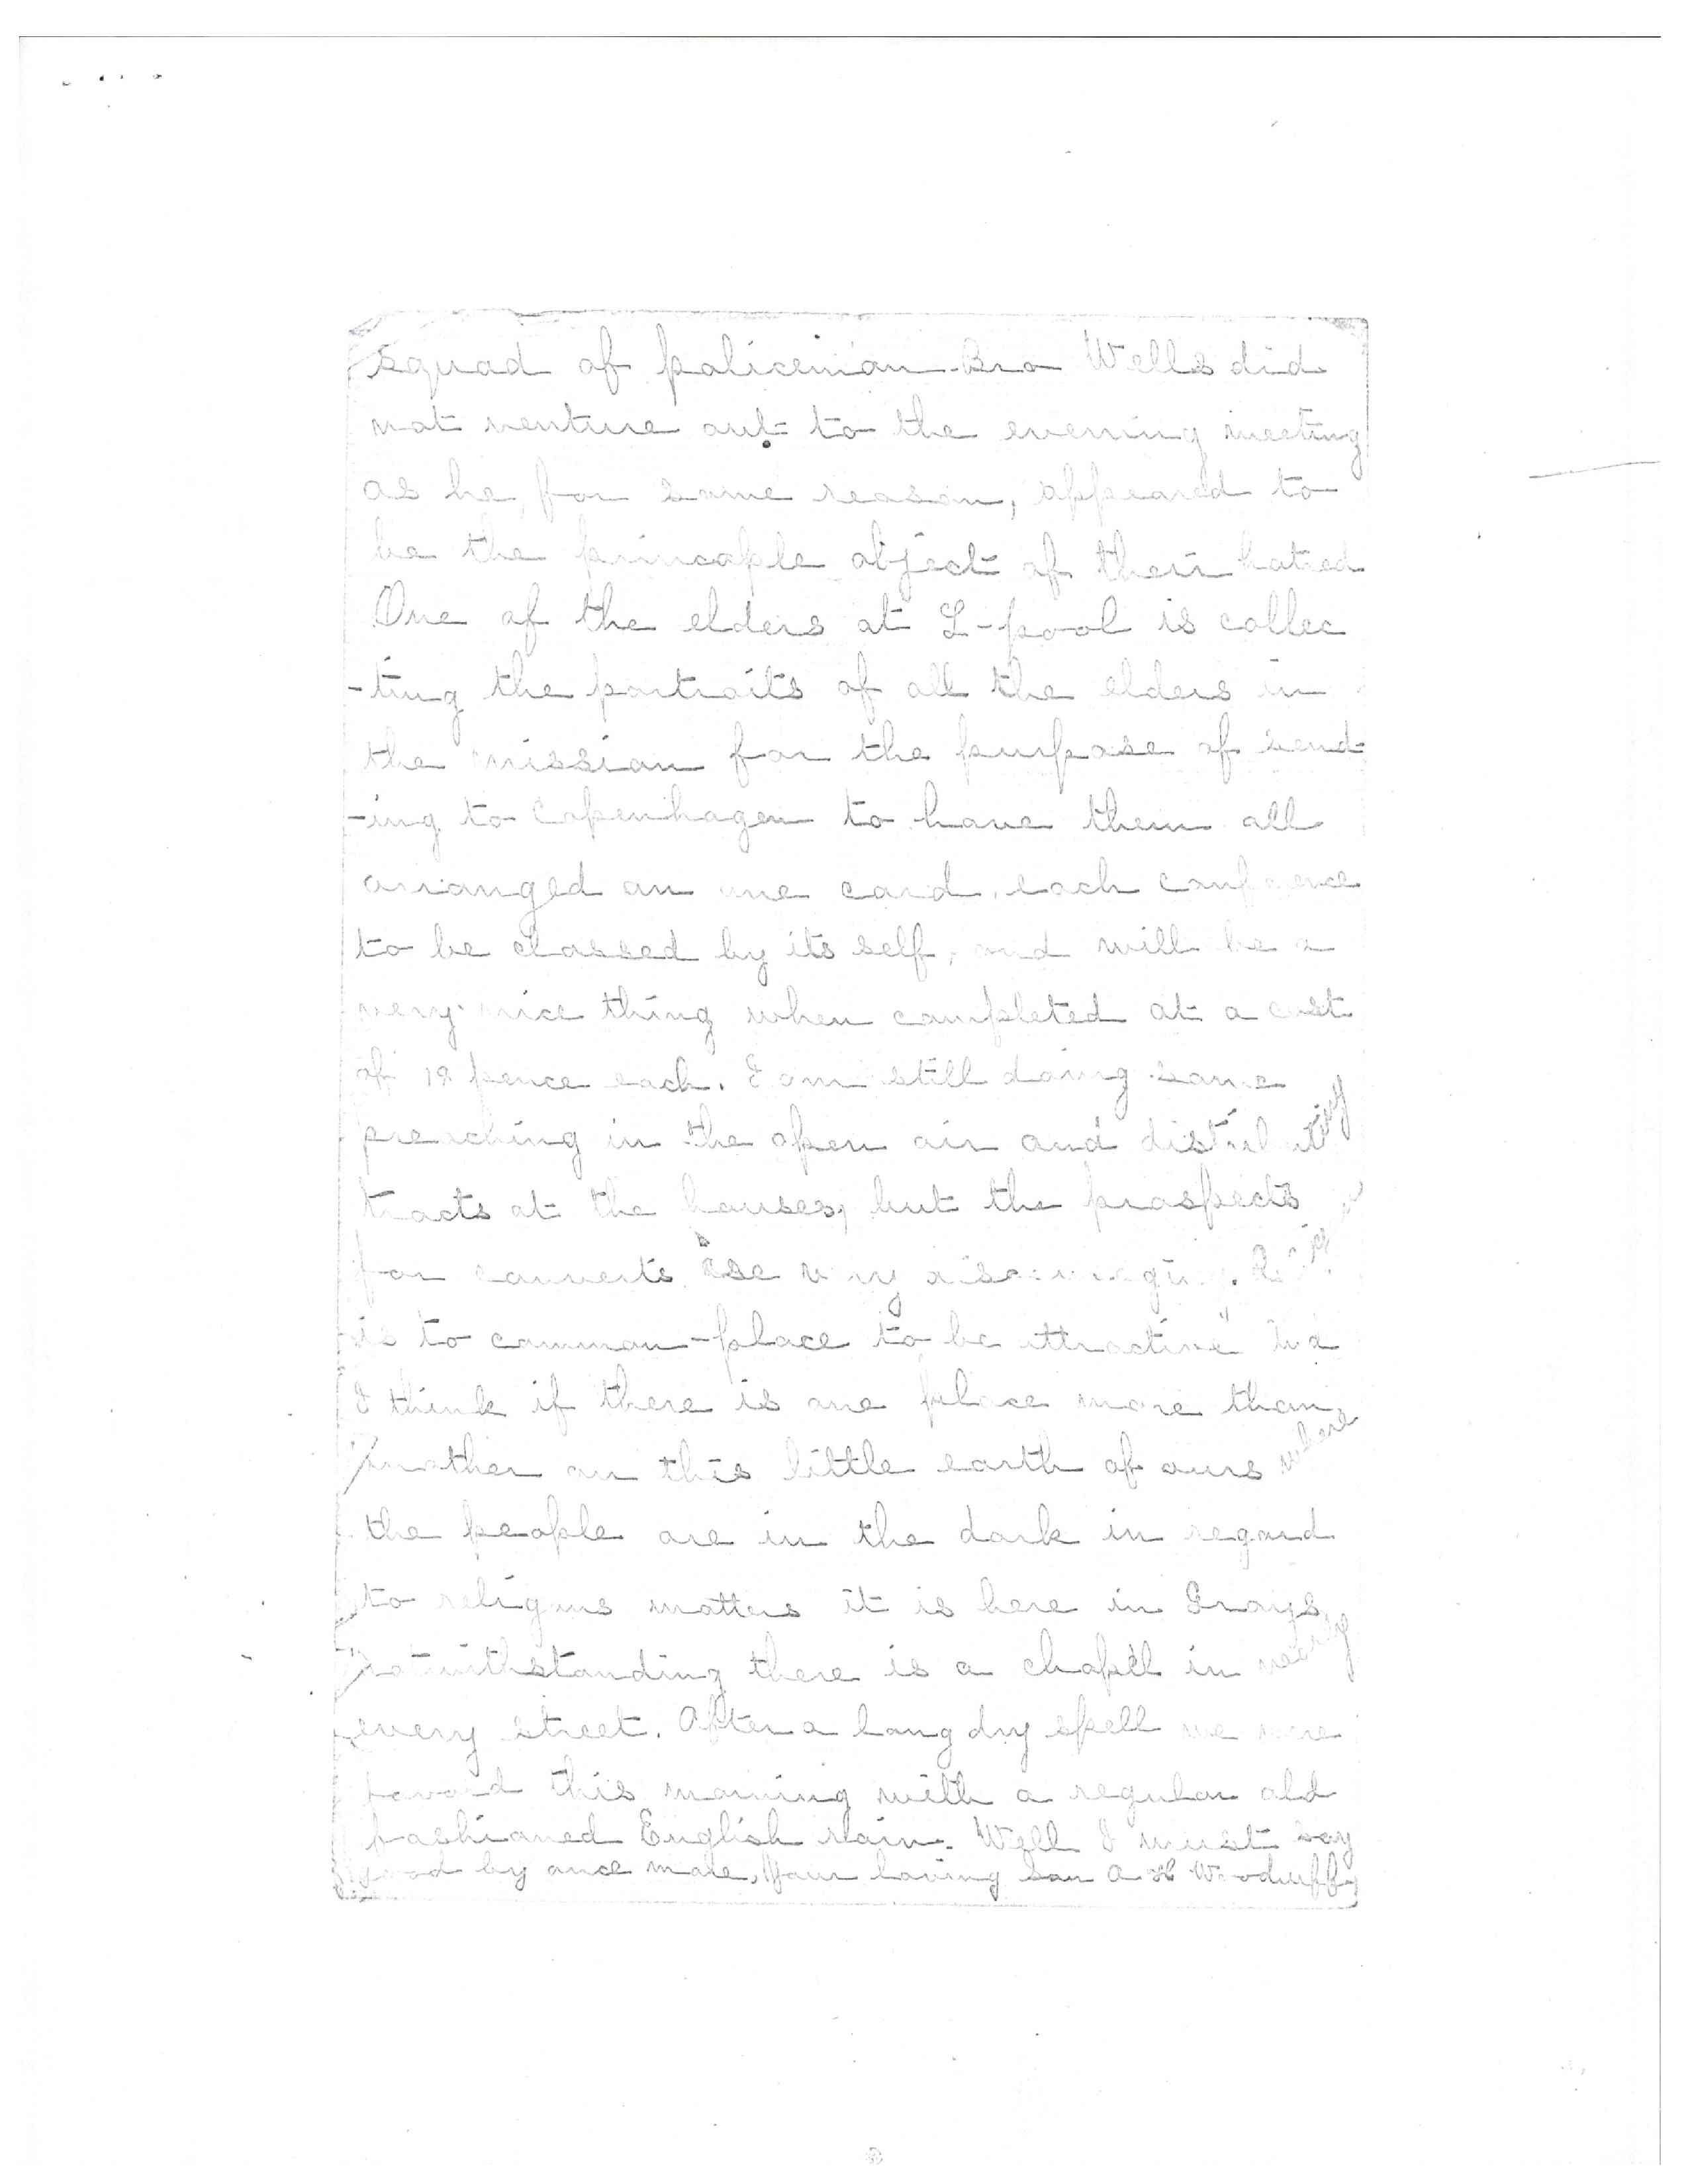 squad of policeman. Bro Wells did
not venture out to the evening meeting
as he, for some reason, appeared to
be the princaple object of their hatred
One of the elders at L-pool is collec
-ting the portraits of all the elders in
the mission for the purpose of send
-ing to Copenhagen to have them all
arranged on one card, each conference
to be classed by its self, and will be a
very nice thing when completed at a cost
of pence each. I am still doing some
preaching in the open air and distributing
tracts at the houses, but the prospects
for converts are very discouraging.
is to common-place to be attractive"
I think if there is one place more than
another on this little earth of ours where
the people are in the dark in regard
to religous matters it is here in Grays,
notwithstanding there is a chapel in nearly
every street. After a long dry spell we were
favord this morning with a regular old
fashioned English rain. Well I must say
good by once more, Your loving son A H Woodruff